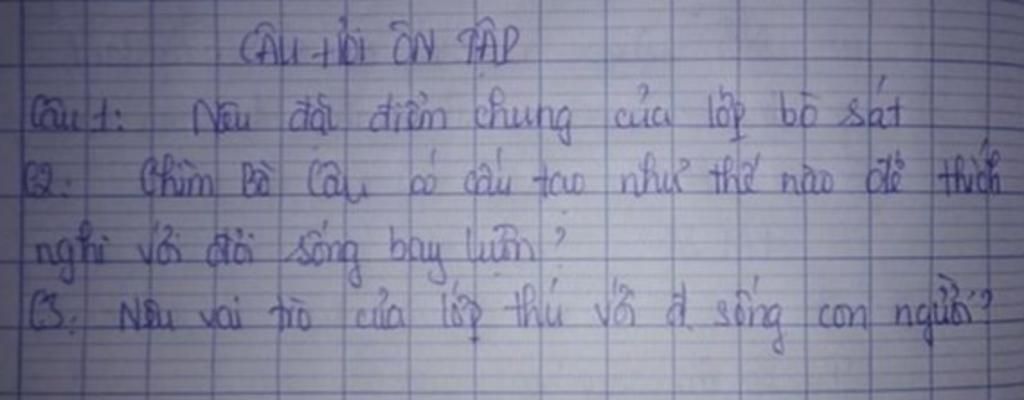 CÂU HỎI ÔN TẬP
Câu 1: Nêu đặc điểm chung của lớp bò sát
C2: Chim Bồ Câu có cấu tạo như thế nào để thích
nghi với đời sống bay lượn?
C3: Nêu vai trò của lớp thú với đ. sống con người?